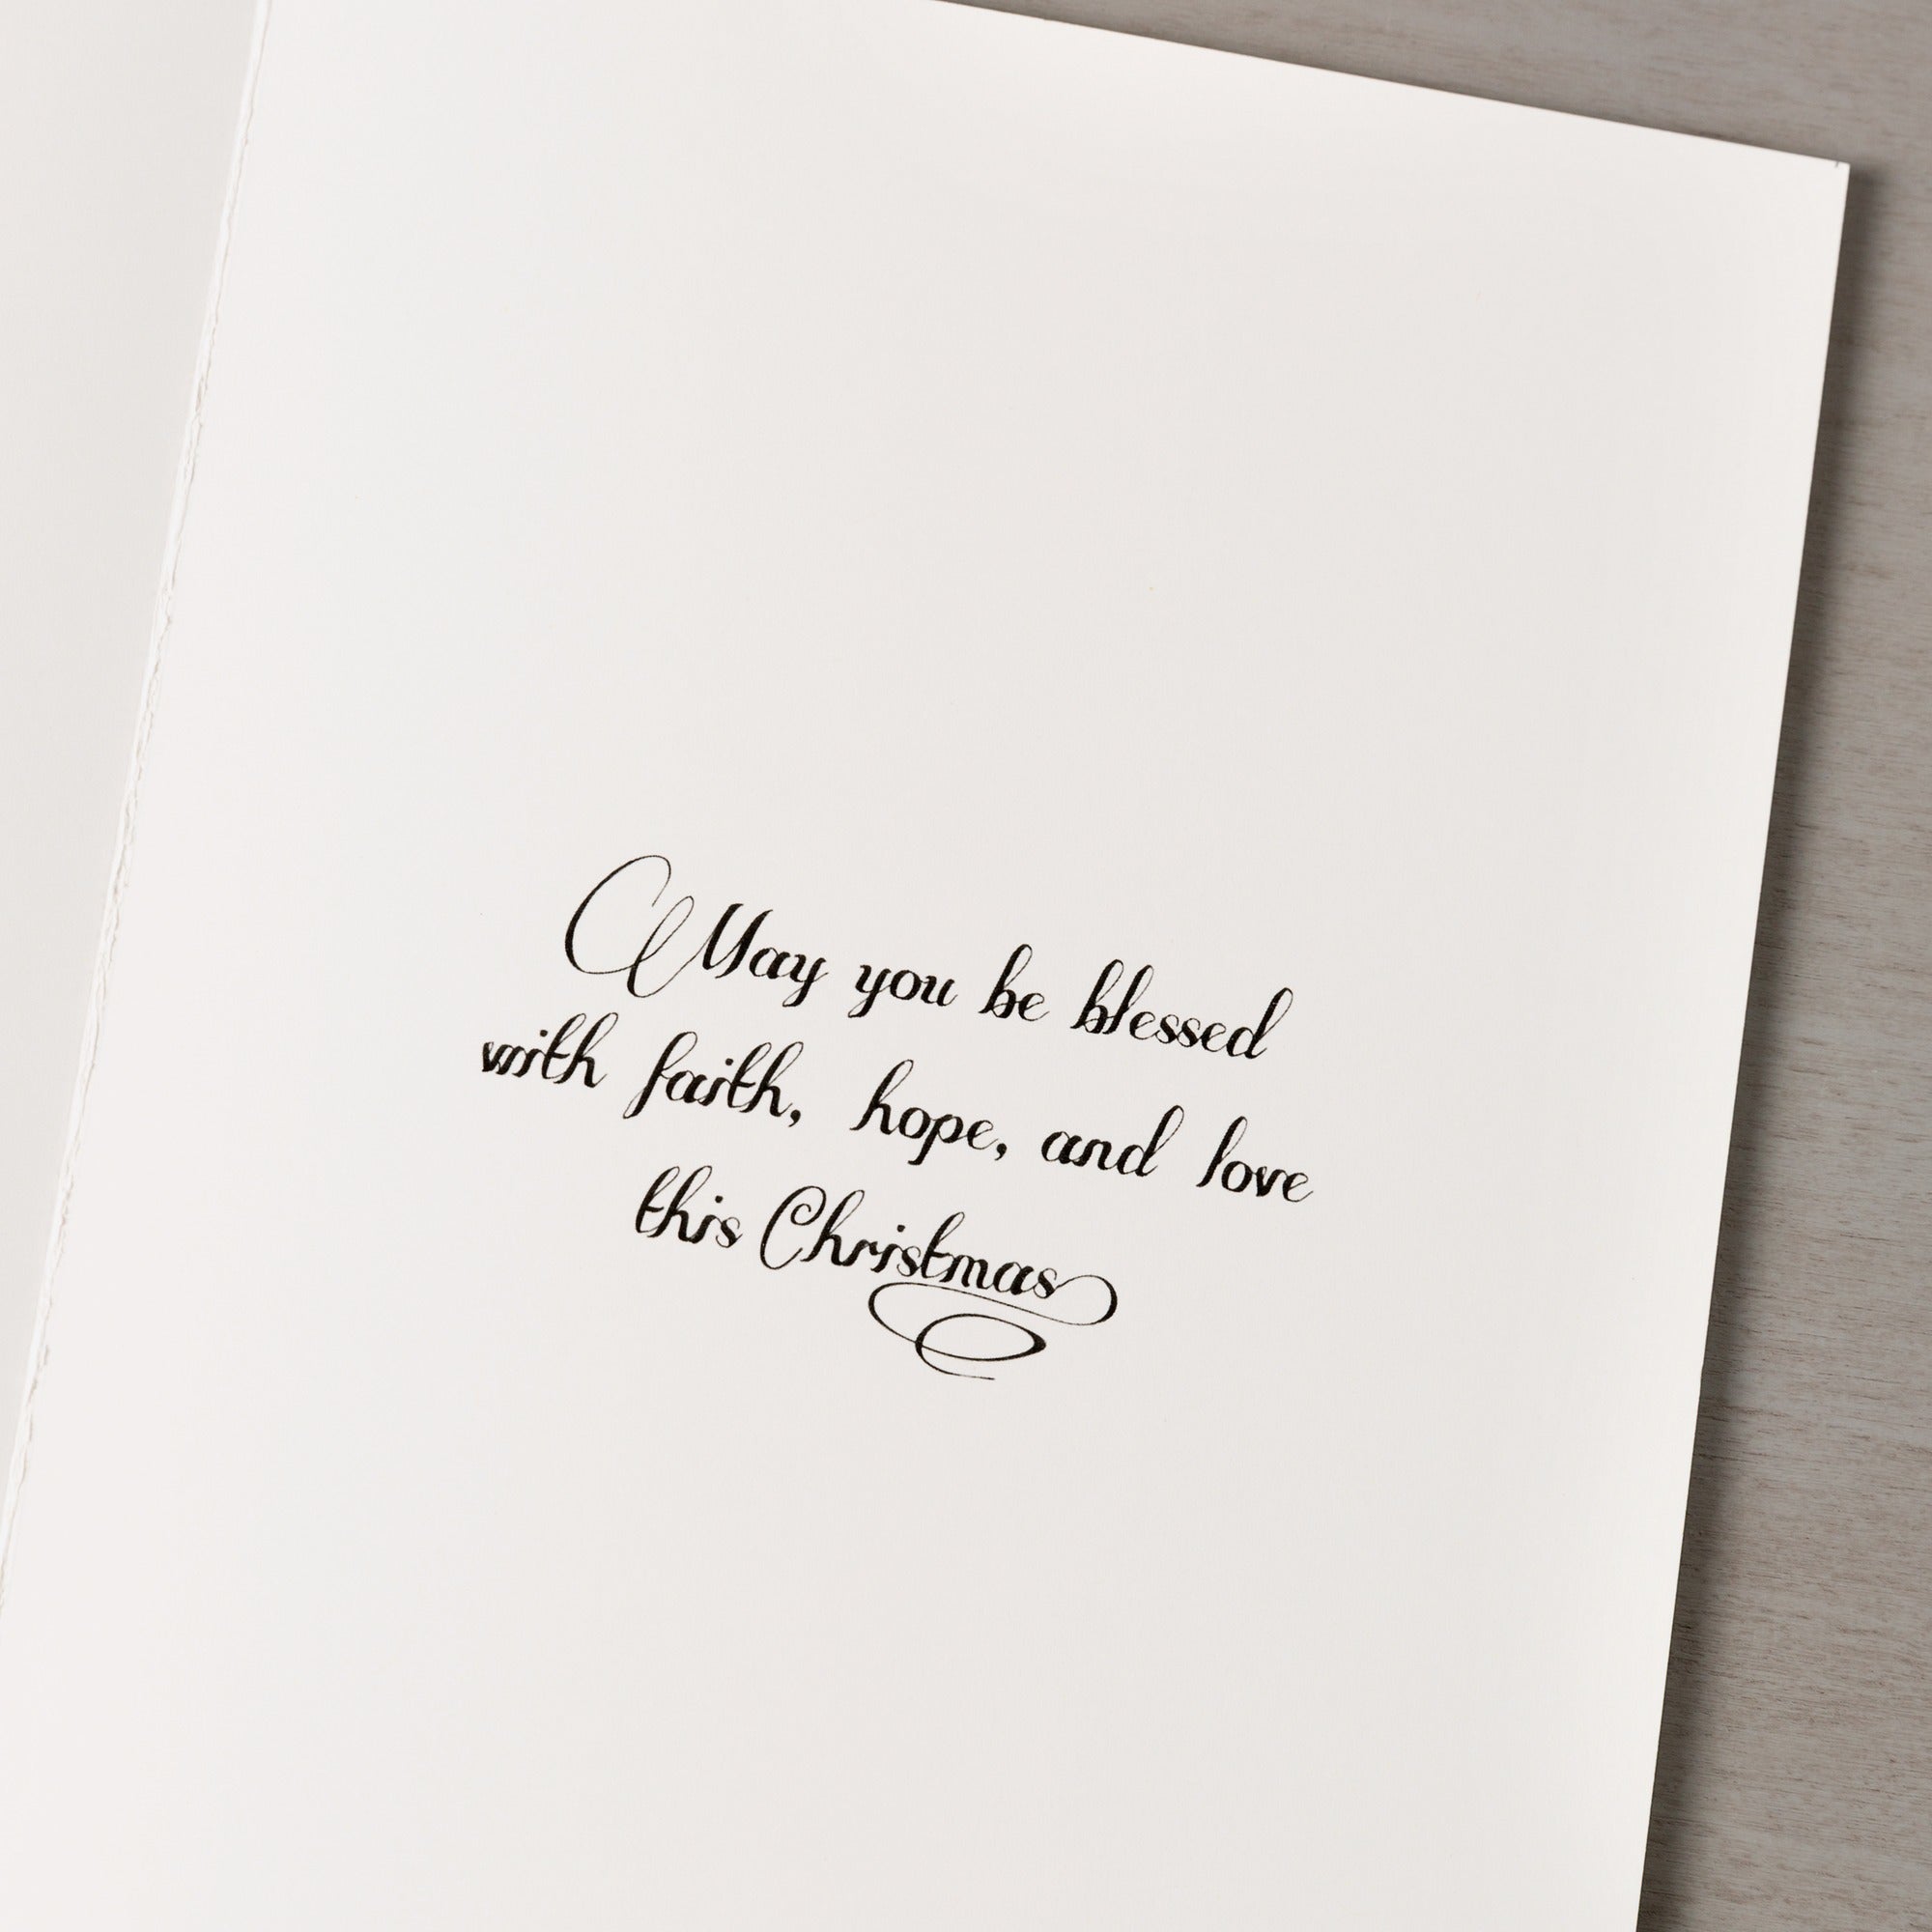 May you be blessed
with faith, hope, and love
this Christmas